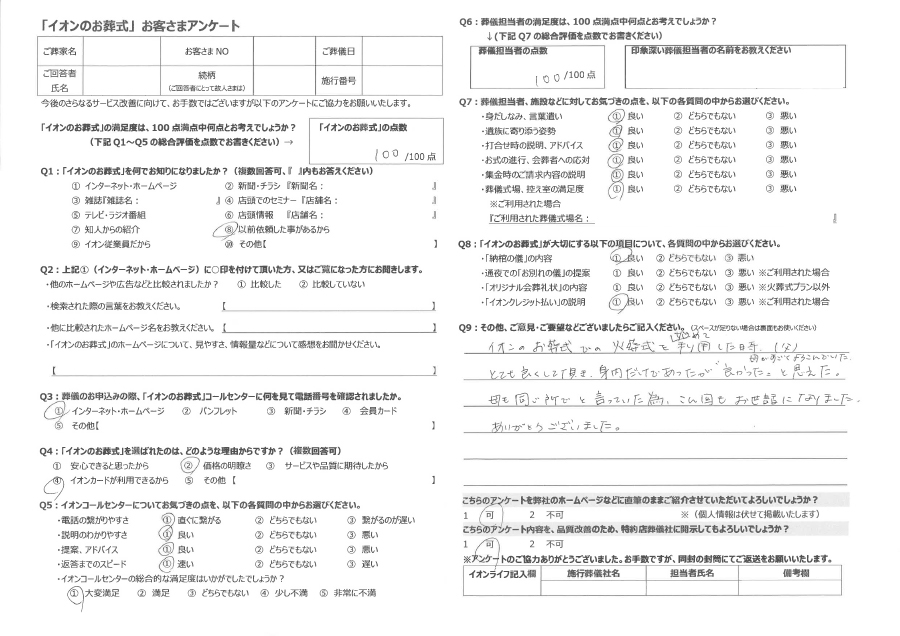 「イオンのお葬式」お客さまアンケート
ご葬家名 お客さまNO ご葬儀日
ご回答者氏名 続柄(ご回答者にとって故人さまは) 施行番号
今後のさらなるサービス改善に向けて、お手数ではございますが以下のアンケートにご協力をお願いいたします。
「イオンのお葬式」の満足度は、100点満点中何点とお考えでしょうか?
(下記Q1~Q5の総合評価を点数でお書きください)→
「イオンのお葬式」の点数
100 /100点
Q1:「イオンのお葬式」を何でお知りになりましたか?(複数回答可、『 』内もお答えください)
① インターネット・ホームページ ② 新聞・チラシ『新聞名: 』
③ 雑誌『雑誌名: 』④ 店頭でのセミナー『店舗名: 』
⑤ テレビ・ラジオ番組 ⑥ 店頭情報 『店舗名: 』
⑦ 知人からの紹介 ⑧ 以前依頼した事があるから
⑨ イオン従業員だから ⑩ その他【 】
Q2:上記①(インターネット・ホームページ)に○印を付けて頂いた方、又はご覧になった方にお聞きします。
・他のホームページや広告などと比較されましたか? ① 比較した ② 比較していない
・検索された際の言葉をお教えください。 【 】
・他に比較されたホームページ名をお教えください。【 】
・「イオンのお葬式」のホームページについて、見やすさ、情報量などについて感想をお聞かせください。
【 】
Q3:葬儀のお申込みの際、「イオンのお葬式」コールセンターに何を見て電話番号を確認されましたか。
① インターネット・ホームページ ② パンフレット ③ 新聞・チラシ ④ 会員カード
⑤ その他【 】
Q4:「イオンのお葬式」を選ばれたのは、どのような理由からですか?(複数回答可)
① 安心できると思ったから ② 価格の明瞭さ ③ サービスや品質に期待したから
④ イオンカードが利用できるから ⑤ その他【 】
Q5:イオンコールセンターについてお気づきの点を、以下の各質問の中からお選びください。
・電話の繋がりやすさ ① 直ぐに繋がる ② どちらでもない ③ 繋がるのが遅い
・説明のわかりやすさ ① 良い ② どちらでもない ③ 悪い
・提案、アドバイス ① 良い ② どちらでもない ③ 悪い
・返答までのスピード ① 速い ② どちらでもない ③ 遅い
・イオンコールセンターの総合的な満足度はいかがでしたでしょうか?
① 大変満足 ② 満足 ③ どちらでもない ④ 少し不満 ⑤ 非常に不満
Q6:葬儀担当者の満足度は、100点満点中何点とお考えでしょうか?
↓(下記Q7の総合評価を点数でお書きください)
葬儀担当者の点数 印象深い葬儀担当者の名前をお教えください
100 /100点
Q7:葬儀担当者、施設などに対してお気づきの点を、以下の各質問の中からお選びください。
・身だしなみ、言葉遣い ① 良い ② どちらでもない ③ 悪い
・遺族に寄り添う姿勢 ① 良い ② どちらでもない ③ 悪い
・打合せ時の説明、アドバイス ① 良い ② どちらでもない ③ 悪い
・お式の進行、会葬者への応対 ① 良い ② どちらでもない ③ 悪い
・集金時のご請求内容の説明 ① 良い ② どちらでもない ③ 悪い
・葬儀式場、控え室の満足度 ① 良い ② どちらでもない ③ 悪い
※ご利用された場合
『ご利用された葬儀式場名: 』
Q8:「イオンのお葬式」が大切にする以下の項目について、各質問の中からお選びください。
・「納棺の儀」の内容 ① 良い ② どちらでもない ③ 悪い
・通夜での「お別れの儀」の提案 ① 良い ② どちらでもない ③ 悪い ※ご利用された場合
・「オリジナル会葬礼状」の内容 ① 良い ② どちらでもない ③ 悪い ※火葬式プラン以外
・「イオンクレジット払い」の説明 ① 良い ② どちらでもない ③ 悪い ※ご利用された場合
Q9:その他、ご意見・ご要望などございましたらご記入ください。(スペースが足りない場合は裏面もお使いください)
初めて
イオンのお葬式での火葬式を利用した時、(父)
とても良くして頂き、身内だけであったが"良かった"と思えた。
母も同じ所でと言っていた為、こん回もお世話になりました。
ありがとうございました。
こちらのアンケートを弊社のホームページなどに直筆のままご紹介させていただいてよろしいでしょうか?
1 可 2 不可 ※(個人情報は伏せて掲載いたします)
こちらのアンケート内容を、品質改善のため、特約店葬儀社に開示してもよろしいでしょうか?
1 可 2 不可
※アンケートのご協力ありがとうございました。お手数ですが、同封の封筒にてご返送をお願いいたします。
イオンライフ記入欄 施行葬儀社名 担当者氏名 備考欄